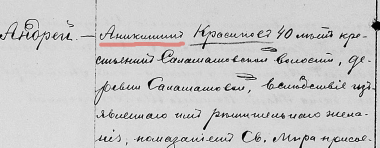 Андрей. — Аникинъ Красиковъ 40 лѣтъ кре-
стьянинъ Салашатовской волости, де-
ревни Салашатовой, вслѣдствіе изъ
явленнаго имъ рѣшительнаго жела-
нія, помазанiемъ Св. Мира присое-